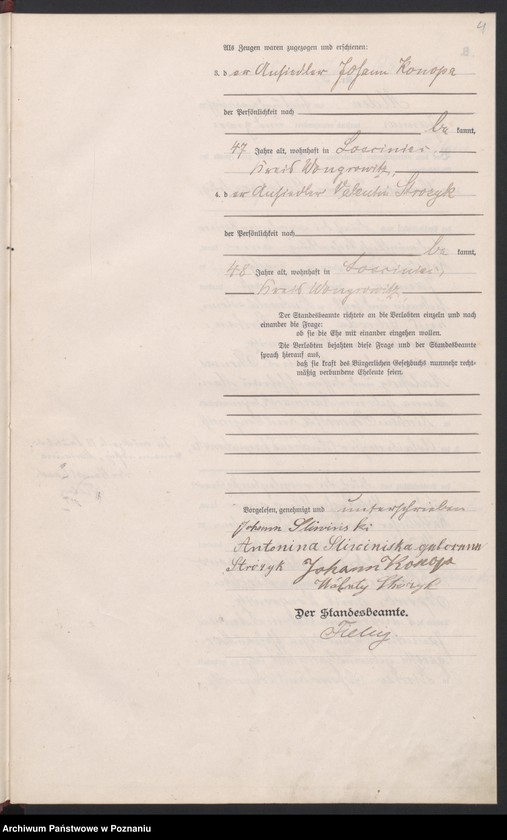 4
Als Zeugen waren zugezogen und erschienen:
3. der Ansiedler Johann Konopa
der Persönlichkeit nach
be kannt,
47 Jahre alt, wohnhaft in
Kreis Wongrowitz,
4. der Ansiedler Valentin Strozyk
der Persönlichkeit nach
be kannt,
48 Jahre alt, wohnhaft in
Kreis Wongrowitz.
Der Standesbeamte richtete an die Verlobten einzeln und nach
einander die Frage:
ob sie die Ehe mit einander eingehen wollen.
Die Verlobten bejahten diese Frage und der Standesbeamte
sprach hierauf aus,
daß sie kraft des Bürgerlichen Gesetzbuchs nunmehr recht-
mäßig verbundene Eheleute seien.
Vorgelesen, genehmigt und unterschrieben
Johann Sliwinski
Antonina geborene
Strozyk Johann Konopa
Strozyk
Der Standesbeamte.
Archiwum Państwowe w Poznaniu